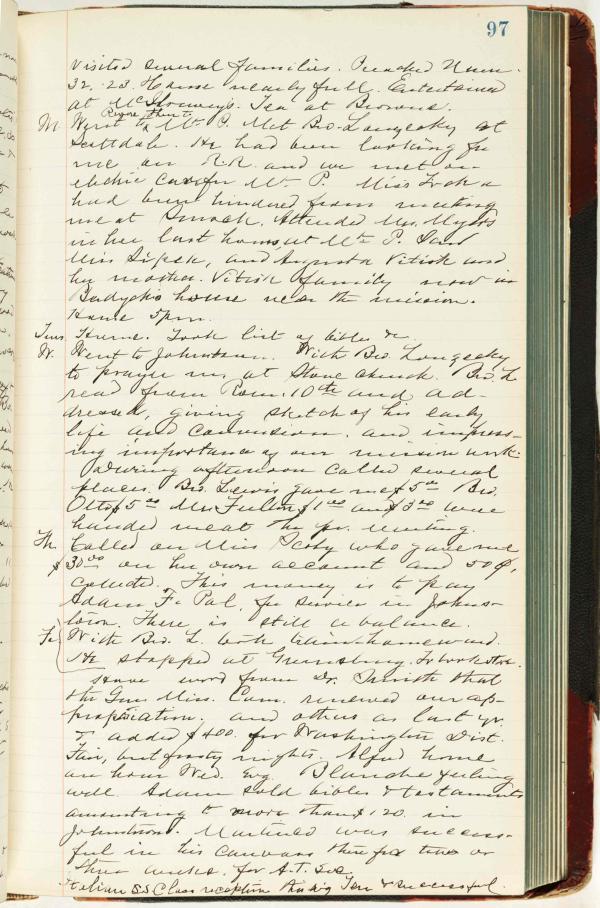 97
visited several families. Preached Num.
32. 23. House nearly full. Entertained
at Tea at Browns.
M. Went to Mt. P. Met Bro. Longecky at
Scottdale. He had been looking for
me on R.R. and we met on
electric car for Mt. P. Miss
had been hindered from meeting
me at Smock. Attended Mrs. Myers
in her last hours at Mt. P. Saw
Miss and Augusta Vitisk and
her mother. Vitisk family now in
house near the mission.
Home 5 pm.
Tues. Home. Took list of bibles &c.
W. Went to Johnstown. With Bro Longecky
to prayer m. at Stone Church. Bro. L
read from Rom. 10th and ad-
dressed, giving sketch of his early
life and conversion, and impress-
ing importance of our mission work.
During afternoon called several
places. Bro. Lewis gave me $5.00 Bro.
Otto $5.00 Mrs. Fulton $1.00 and $3.00 were
handed me at the pr. meeting.
Th. Called on Miss who gave me
$30.00 on her own account and 50¢,
collected. This money is to pay
Adam F. Pal, for service in Johns-
town. There is still a balance.
Fr. With Bro. L. took train homeward.
He stopped at Greensburg.
Have word from Dr. Smith that
the Gen. Miss. Com. renewed our ap-
propriation, and others as last yr.
& added $400. for Washington Dist.
Fair, but frosty nights. Alfred home
an hour Wed. Evg. Blanche feeling
well. Adam sold bibles & testaments
amounting to more than $120. in
Johnstown. was success-
ful in his canvass there for two or
three weeks. for A.T. Soc.
Italian S.S. Class reception Tea & successful.